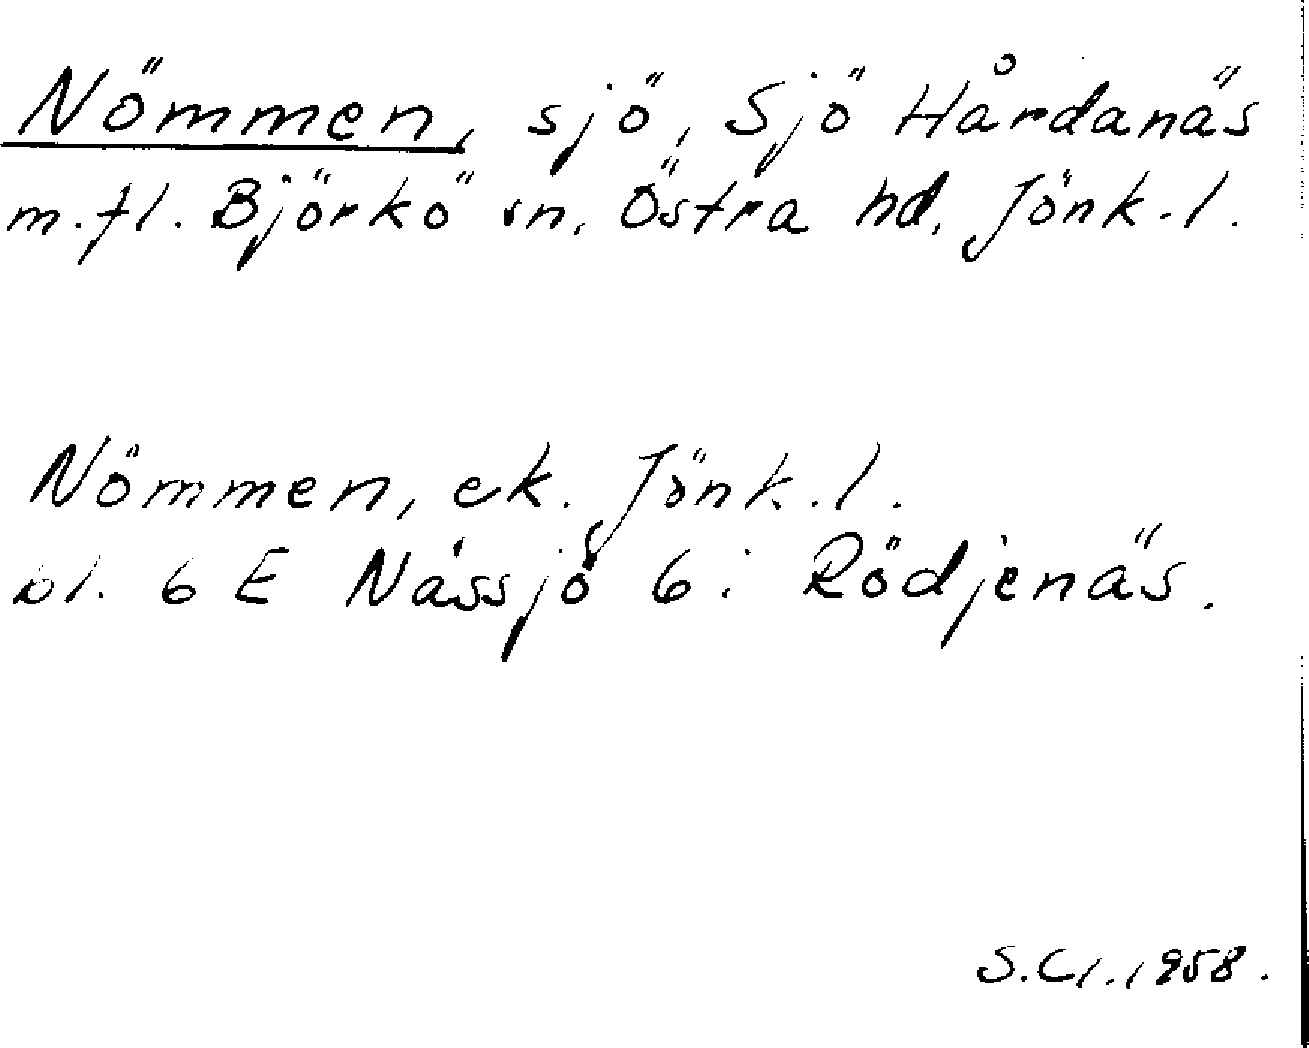 Nömmen, sjö, Sjö Hårdanäs
m.fl. Björkö sn, Östra hd, Jönk.l.
Nömmen, ek. Jönk.l.
bl. 6 E Nässjö 6 i Rödjenäs.
S.Cl. 1958.